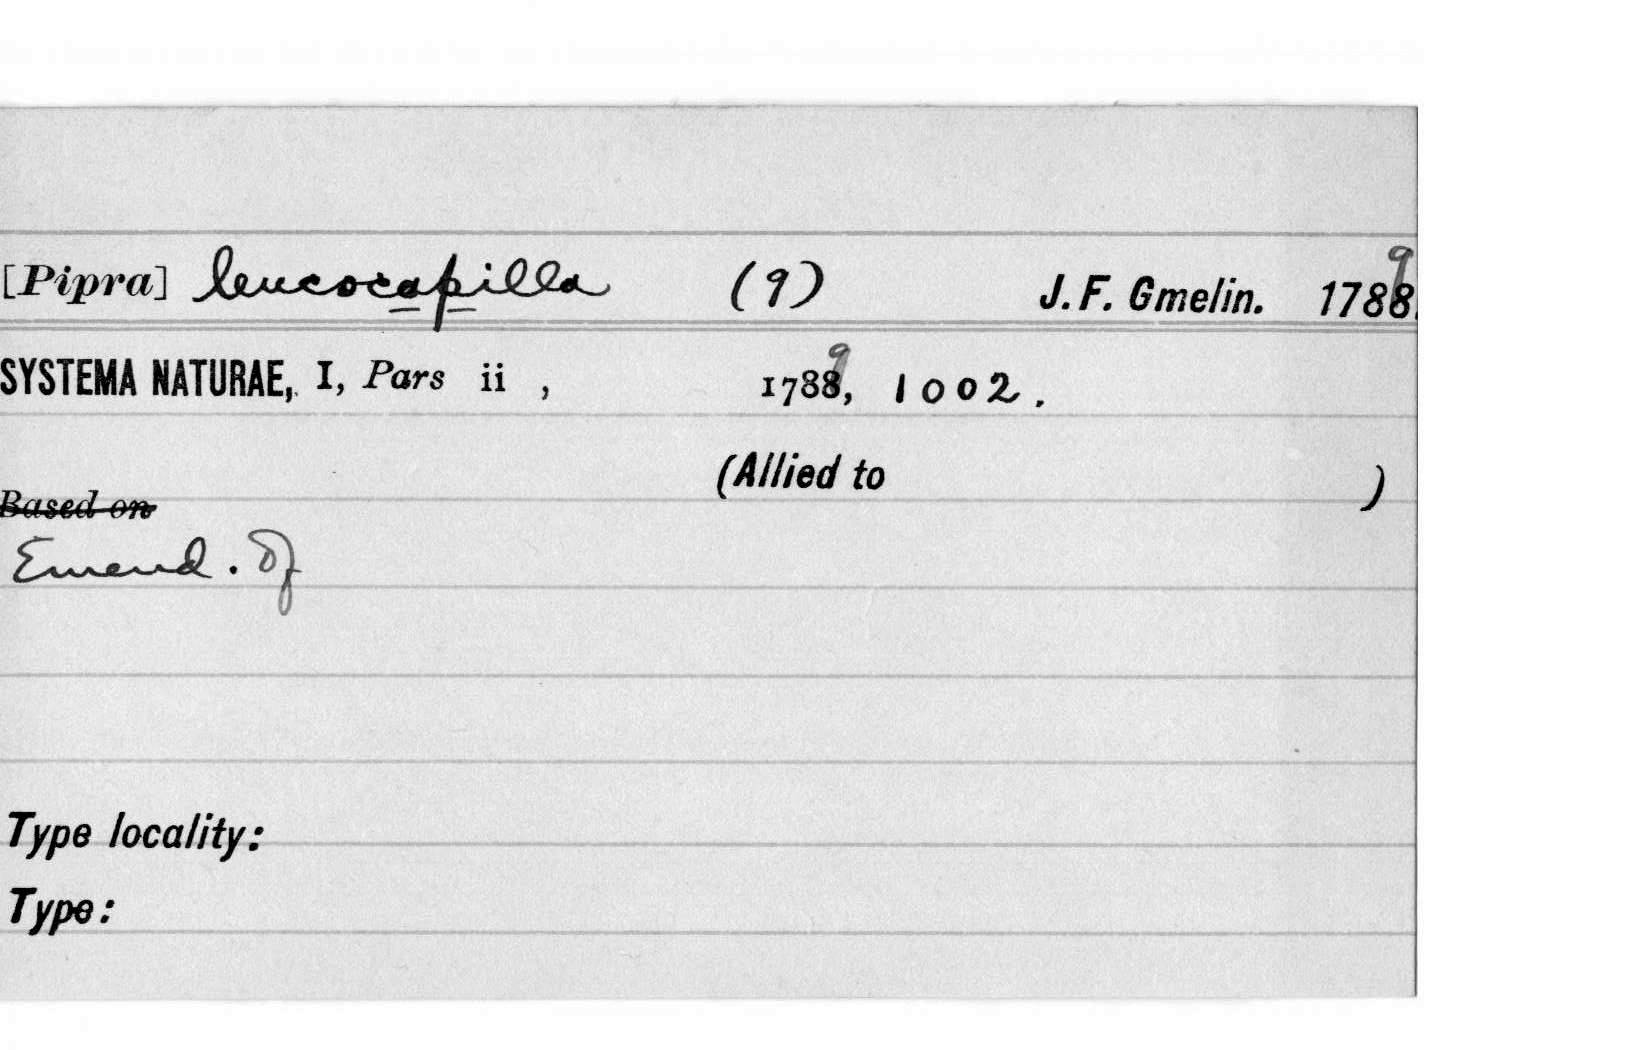 [Pipra] leucocapilla (9) J. F. Gmelin. 1789.
SYSTEMA NATURAE, I, Pars ii , 1789, 1002.
(Allied to )
Based on
Emend. of
Type locality:
Type: